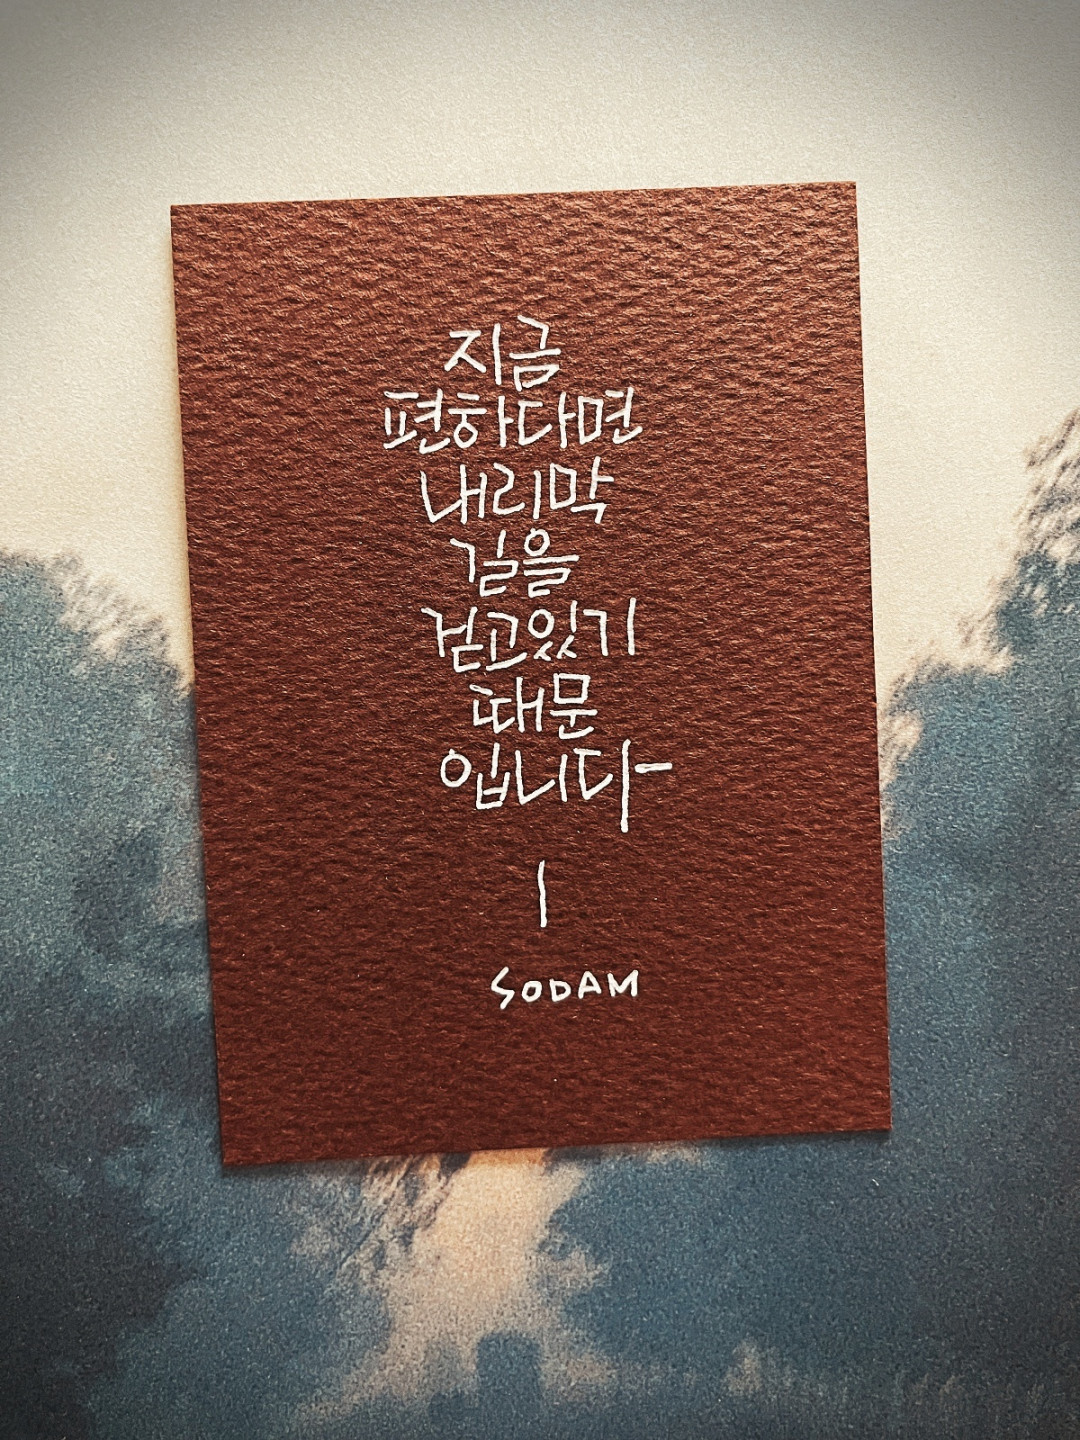 지금
편하다면
내리막
길을
걷고있기
때문
입니다-
|
SODAM